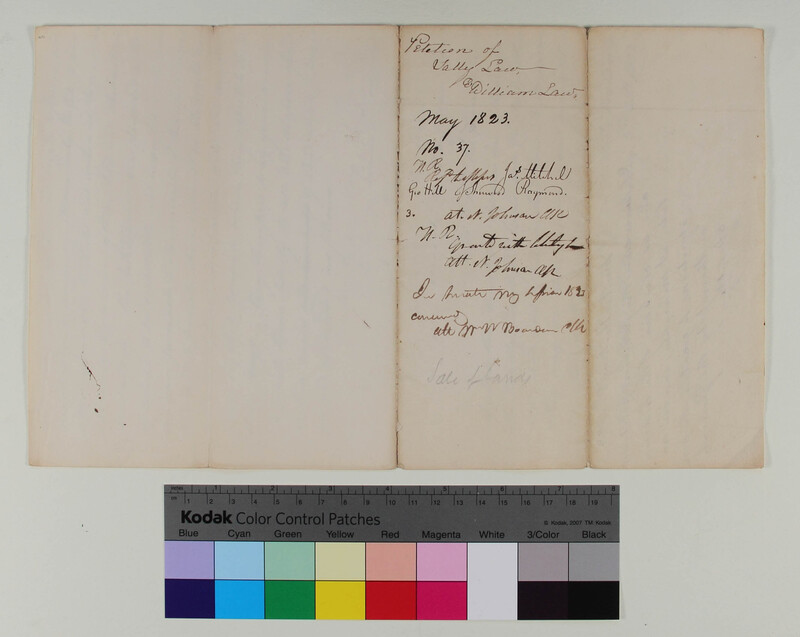 Petition of
Vally Law,
& William Law,
May 1823.
No. 37.
H. R.
Jas. Mitchel
Geo Hill Raymond.
3. at. N. Johnson Clk
H. R.
Granted with liberty &c
att. N. Johnson Clk
In Senate May Session 1823
concurred
att Wm W Boardman Clk
Sale of Land
inches 1 2 3 4 5 6 7 8
cm 1 2 3 4 5 6 7 8 9 10 11 12 13 14 15 16 17 18 19
Kodak Color Control Patches
© Kodak, 2007 TM: Kodak
Blue Cyan Green Yellow Red Magenta White 3/Color Black